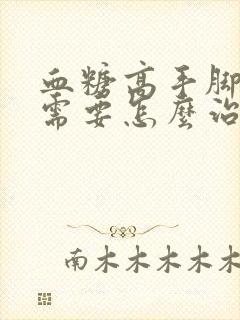 血糖高手脚
需要怎麼治
南木木木木木